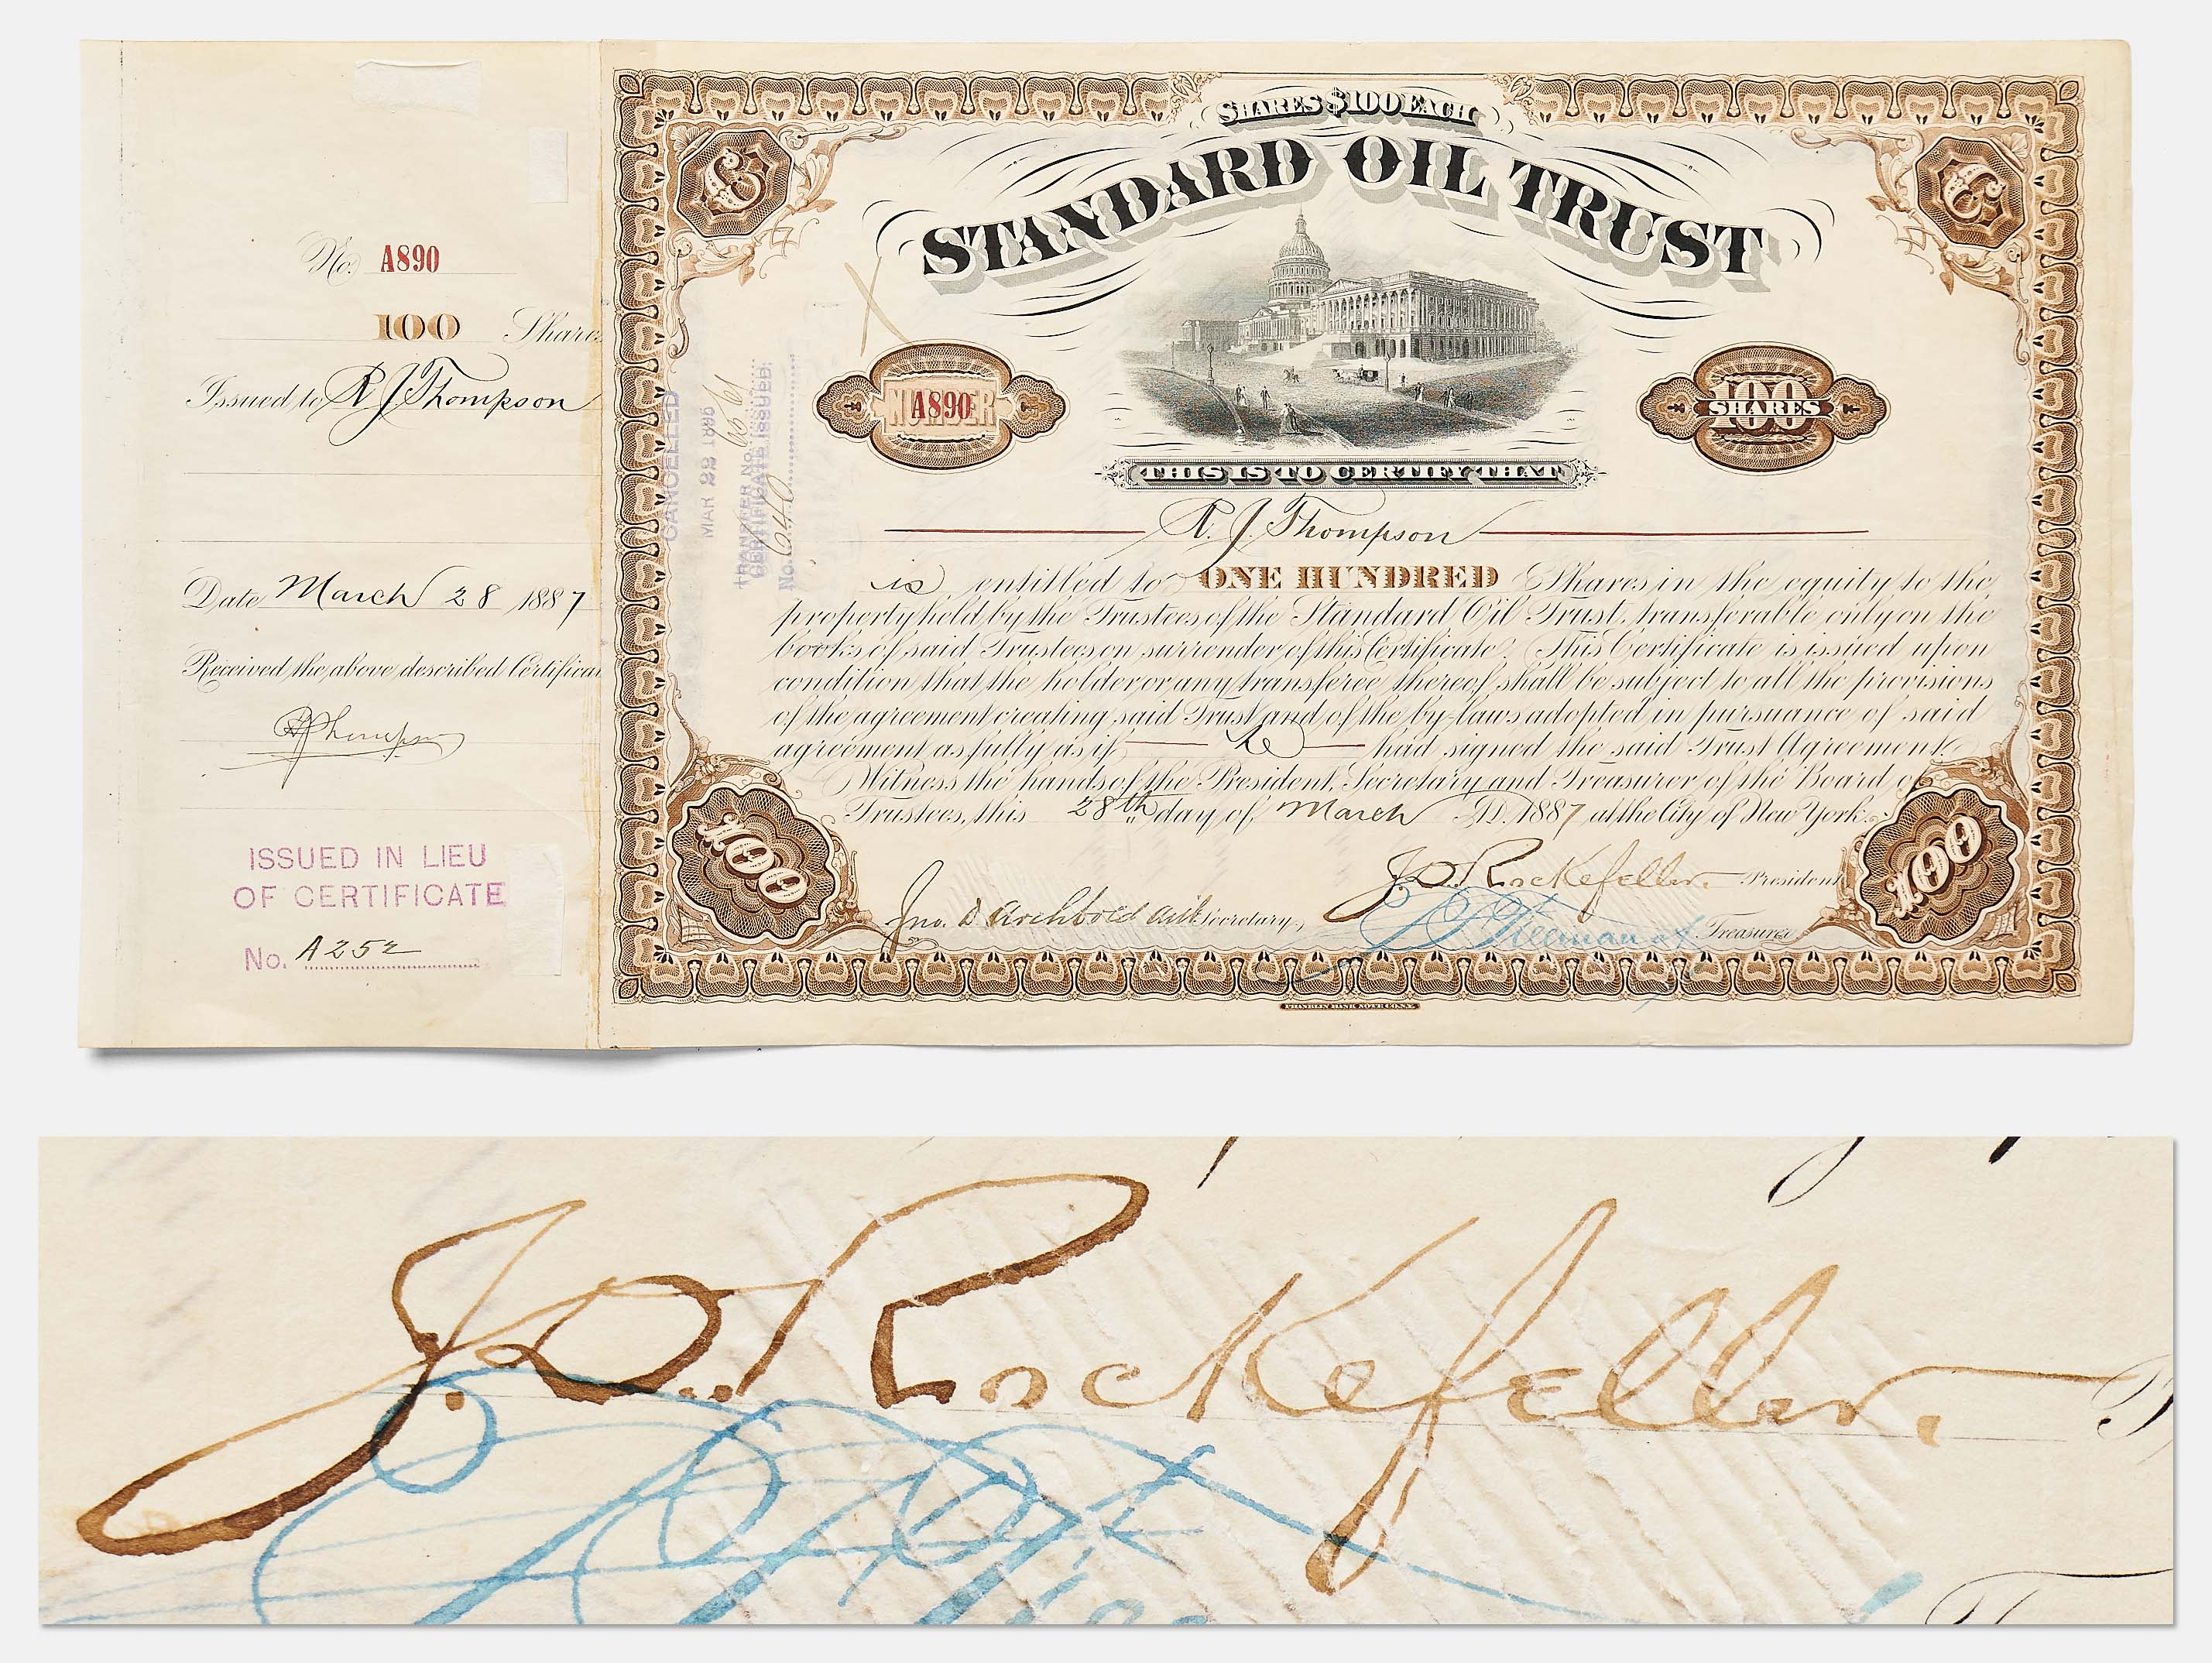 No. A890
100 Share
Issued to R J Thompson
Date March 28 1887
Received the above described Certifica
RJThompson
ISSUED IN LIEU
OF CERTIFICATE
No. A252
SHARES $100 EACH
STANDARD OIL TRUST
C
C
CANCELLED
MAR 22 1895
TRANSFER No.
CERTIFICATE ISSUED.
No.
NUMBER A890
100 SHARES
THIS IS TO CERTIFY THAT
R. J. Thompson
is entitled to ONE HUNDRED Shares in the equity to the
property held by the Trustees of the Standard Oil Trust, transferable only on the
books of said Trustees on surrender of this Certificate. This Certificate is issued upon
condition that the holder or any transferee thereof shall be subject to all the provisions
of the agreement creating said Trust and of the by-laws adopted in pursuance of said
agreement as fully as if he had signed the said Trust Agreement.
Witness the hands of the President, Secretary and Treasurer of the Board of
Trustees, this 28th day of March A.D. 1887 at the City of New York.
100
100
J.D. Rockefeller. President
Jno. D Archbold Secretary,
Treasurer
FRANKLIN BANK NOTE CO. N.Y.
J.D. Rockefeller.